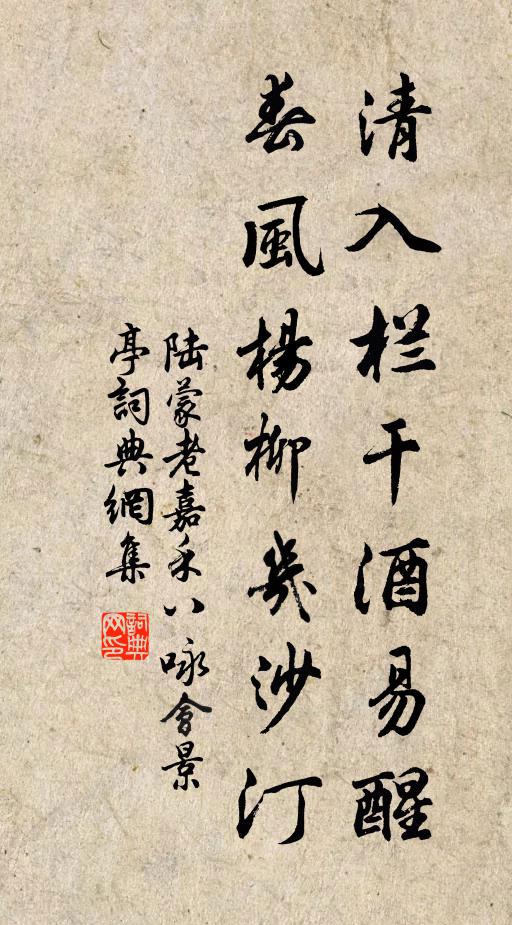 清入栏干酒易醒
春風楊柳幾沙汀
陆蒙老嘉禾八咏會景
亭詞典網集
詞典
网印